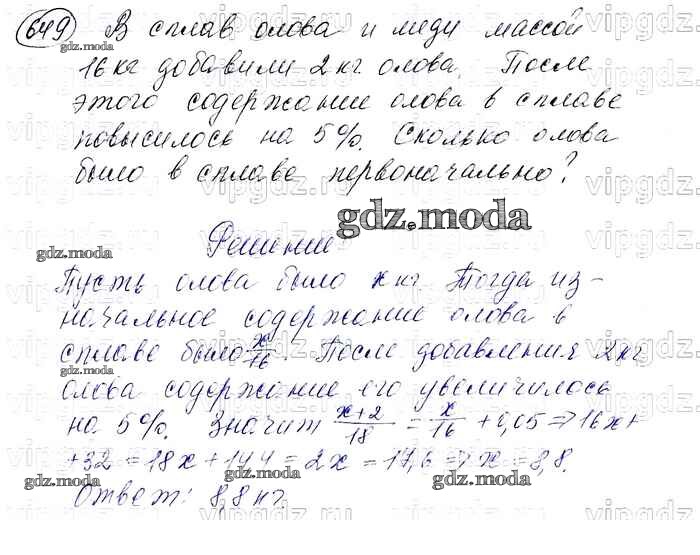 649 В сплав олова и меди массой
16 кг добавили 2 кг олова. После
этого содержание олова в сплаве
повысилось на 5%. Сколько олова
было в сплаве первоначально?
gdz.moda
Решение
Пусть олова было x кг. Тогда из-
начальное содержание олова в
сплаве было x/16. После добавления 2 кг
олова содержание его увеличилось
на 5%. Значит (x+2)/18 = x/16 + 0,05 => 16x+
+32 = 18x + 14,4 = 2x = 17,6 => x = 8,8.
Ответ: 8,8 кг.